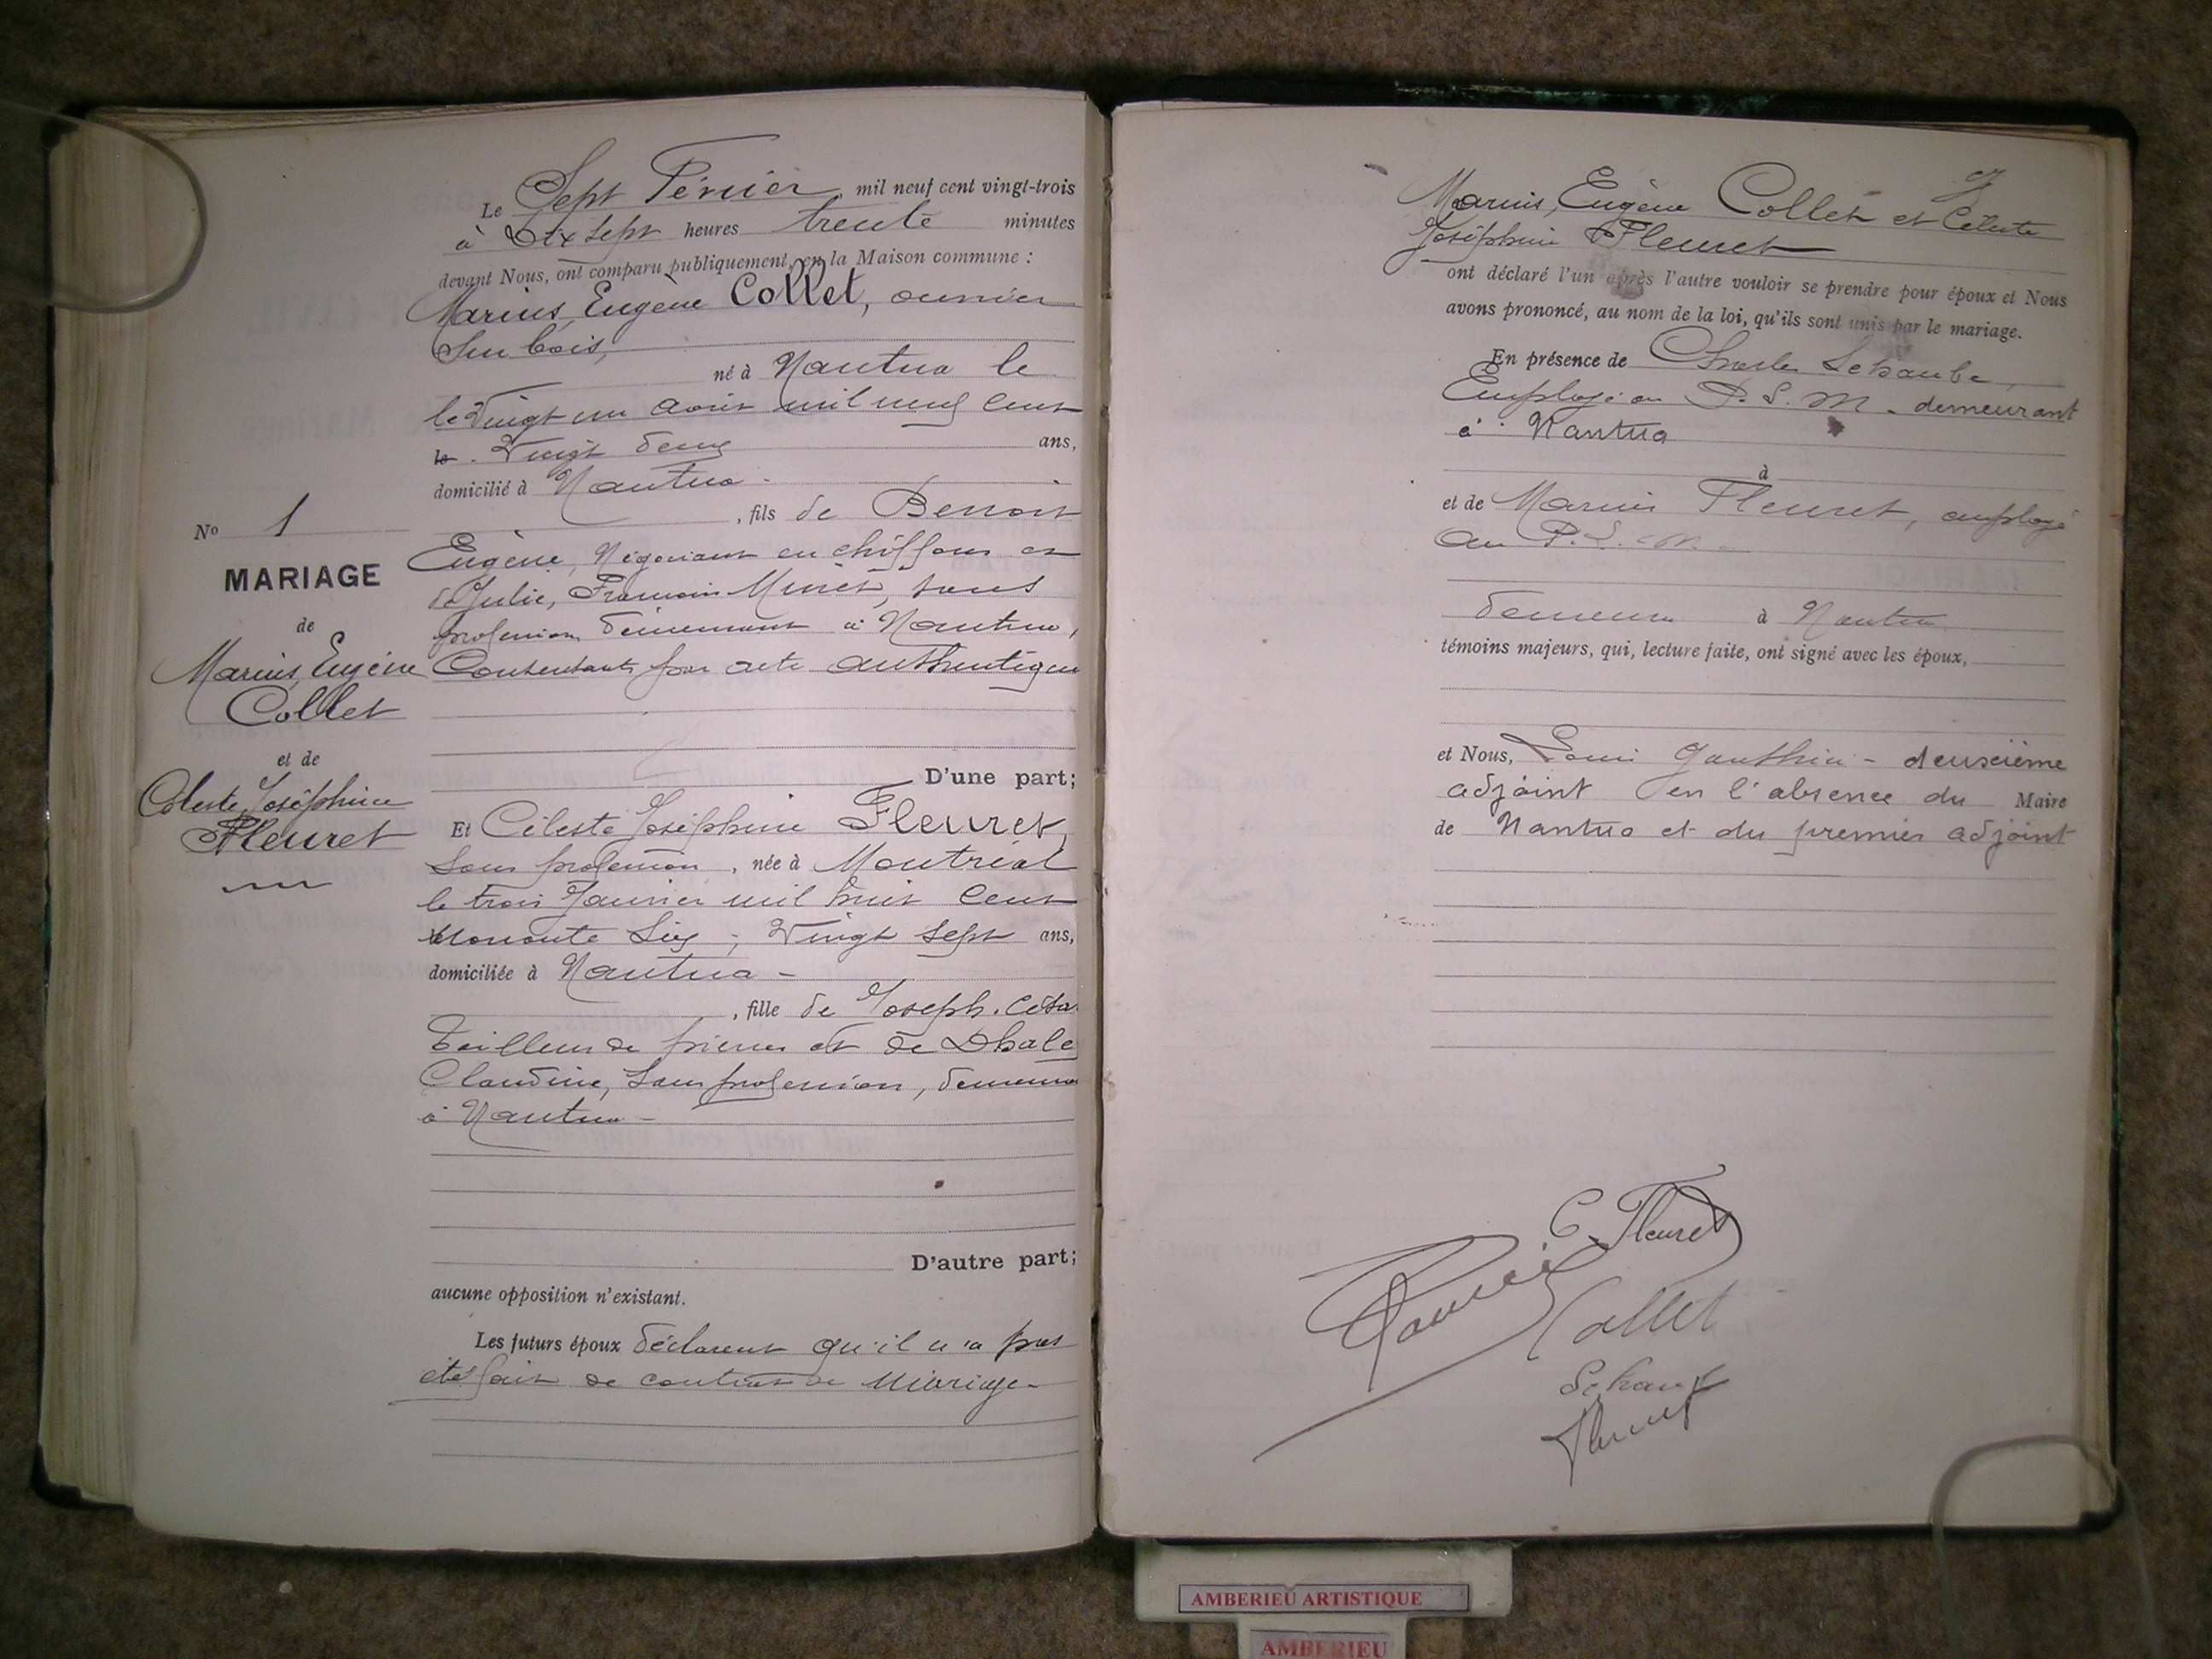 Le Sept Février, mil neuf cent vingt-trois
à Dix sept heures trente minutes
devant Nous, ont comparu publiquement, en la Maison commune :
Marius, Eugène Collet, ouvrier
Sur bois,
né à Nantua le
le Vingt un mil neuf cent
le Vingt deux ans,
domicilié à Nantua -
, fils de Benoit
Eugène, Négociant en chiffons et
de Julie, sans
profession demeurant à Nantua,
Consentants par acte authentique
D'une part;
No 1
MARIAGE
de
Marius, Eugène
Collet
et de
Céleste Joséphine
Fleuret
Et Céleste Joséphine Fleuret,
Sans profession, née à Montréal
le trois Janvier mil huit cent
Nonante Six ; Vingt sept ans,
domiciliée à Nantua -
, fille de Joseph. César
Tailleur de pierres et de Dhale
Claudine, Sans profession, demeurant
à Nantua -
D'autre part;
aucune opposition n'existant.
Les futurs époux déclarent qu'il n'a pas
été fait de contrat de Mariage -
Marius, Eugène Collet et Céleste
Joséphine Fleuret
ont déclaré l'un après l'autre vouloir se prendre pour époux et Nous
avons prononcé, au nom de la loi, qu'ils sont unis par le mariage.
En présence de Charles Schaube,
Employé au P. L. M. - demeurant
à Nantua
à
et de Marius Fleuret, employé
au P. L. M.
demeurant à Nantua
témoins majeurs, qui, lecture faite, ont signé avec les époux,
et Nous, Louis Gauthier - deuxième
adjoint en l'absence du Maire
de Nantua et du premier adjoint
C. Fleuret
Collet
Fleuret
AMBERIEU ARTISTIQUE
AMBERIEU